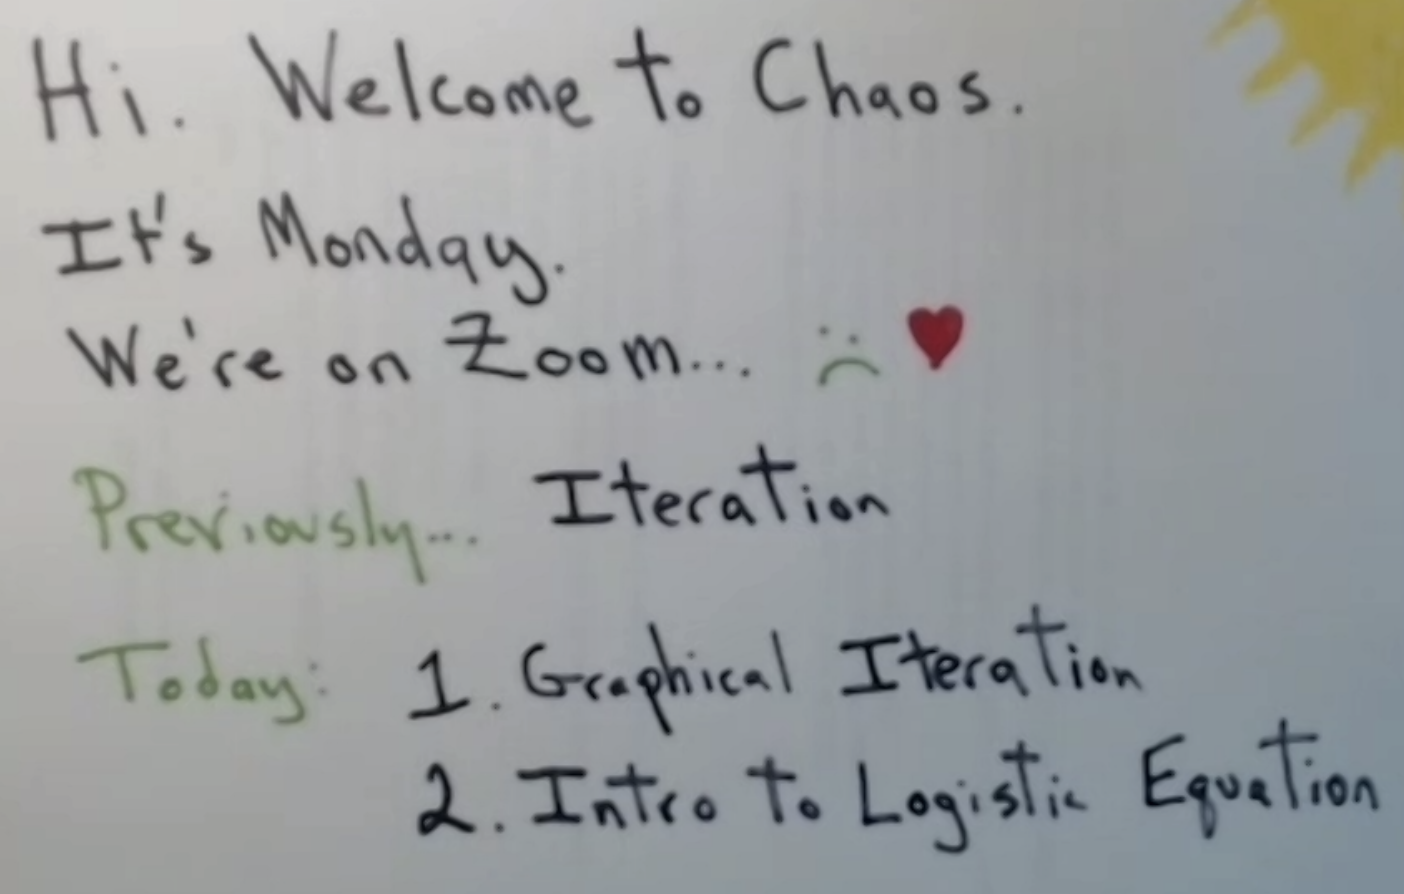 Hi. Welcome to Chaos.
It's Monday.
We're on Zoom...
Previously... Iteration
Today: 1. Graphical Iteration
2. Intro to Logistic Equation